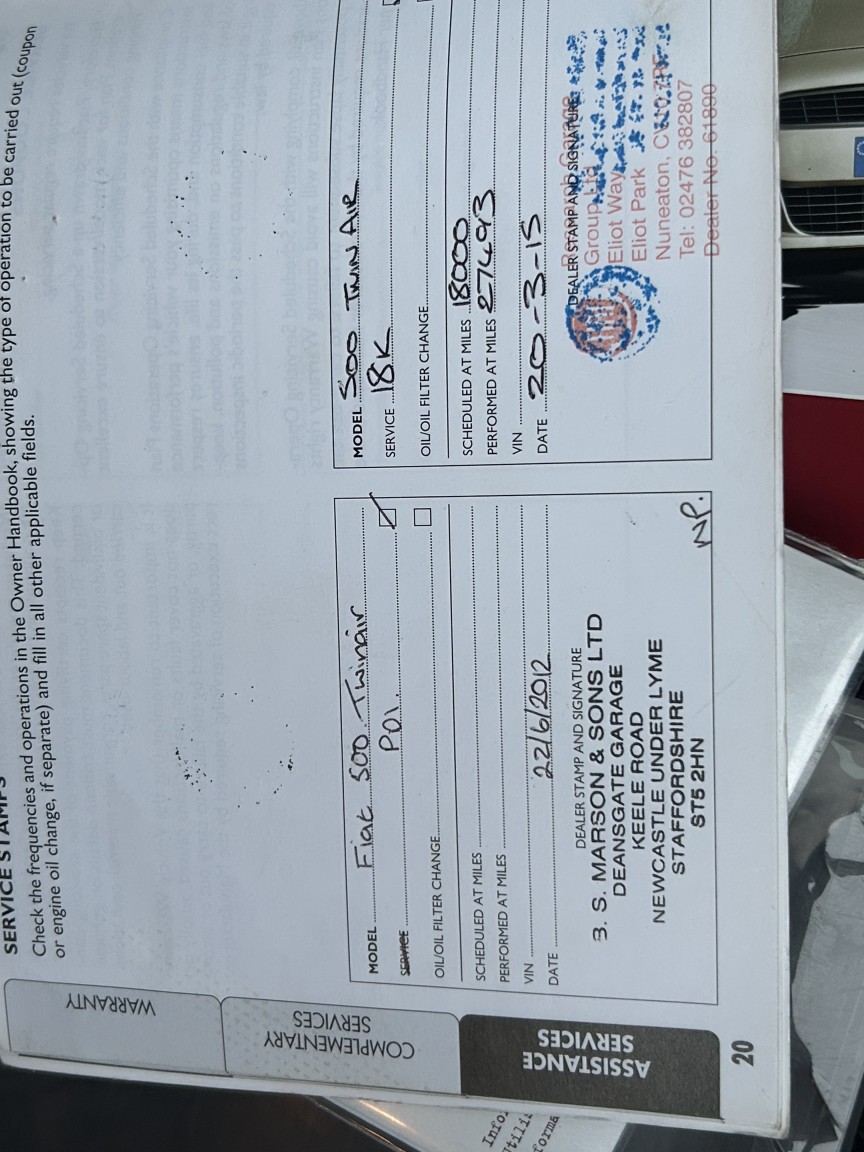 SERVICE STAMPS
Check the frequencies and operations in the Owner Handbook, showing the type of operation to be carried out (coupon
or engine oil change, if separate) and fill in all other applicable fields.
MODEL Fiat 500 Twinair
SERVICE PDI.
OIL/OIL FILTER CHANGE
SCHEDULED AT MILES
PERFORMED AT MILES
VIN
DATE 22/6/2012
DEALER STAMP AND SIGNATURE
B. S. MARSON & SONS LTD
DEANSGATE GARAGE
KEELE ROAD
NEWCASTLE UNDER LYME
STAFFORDSHIRE
ST5 2HN
NP.
MODEL 500 TWIN AIR
SERVICE 18K
OIL/OIL FILTER CHANGE
SCHEDULED AT MILES 18000
PERFORMED AT MILES 27493
VIN
DATE 20-3-15
DEALER STAMP AND SIGNATURE
Garage
Group Ltd
Eliot Way
Eliot Park
Nuneaton,
Tel: 02476 382807
Dealer No. 61890
WARRANTY
COMPLEMENTARY
SERVICES
ASSISTANCE
SERVICES
20